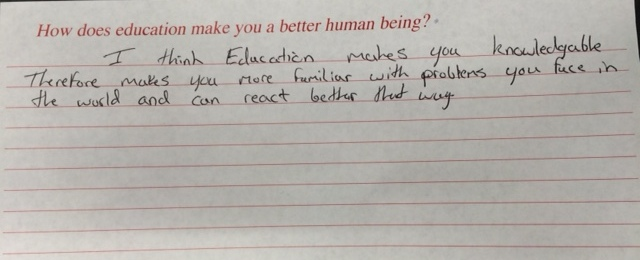 How does education make you a better human being?
I think Education makes you knowledgable
Therefore makes you more familiar with problems you face in
the world and can react bettar that way